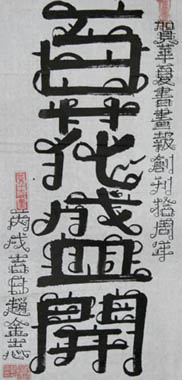 賀華夏書畫報創刊拾周年
百花盛開
丙戌吉日趙金